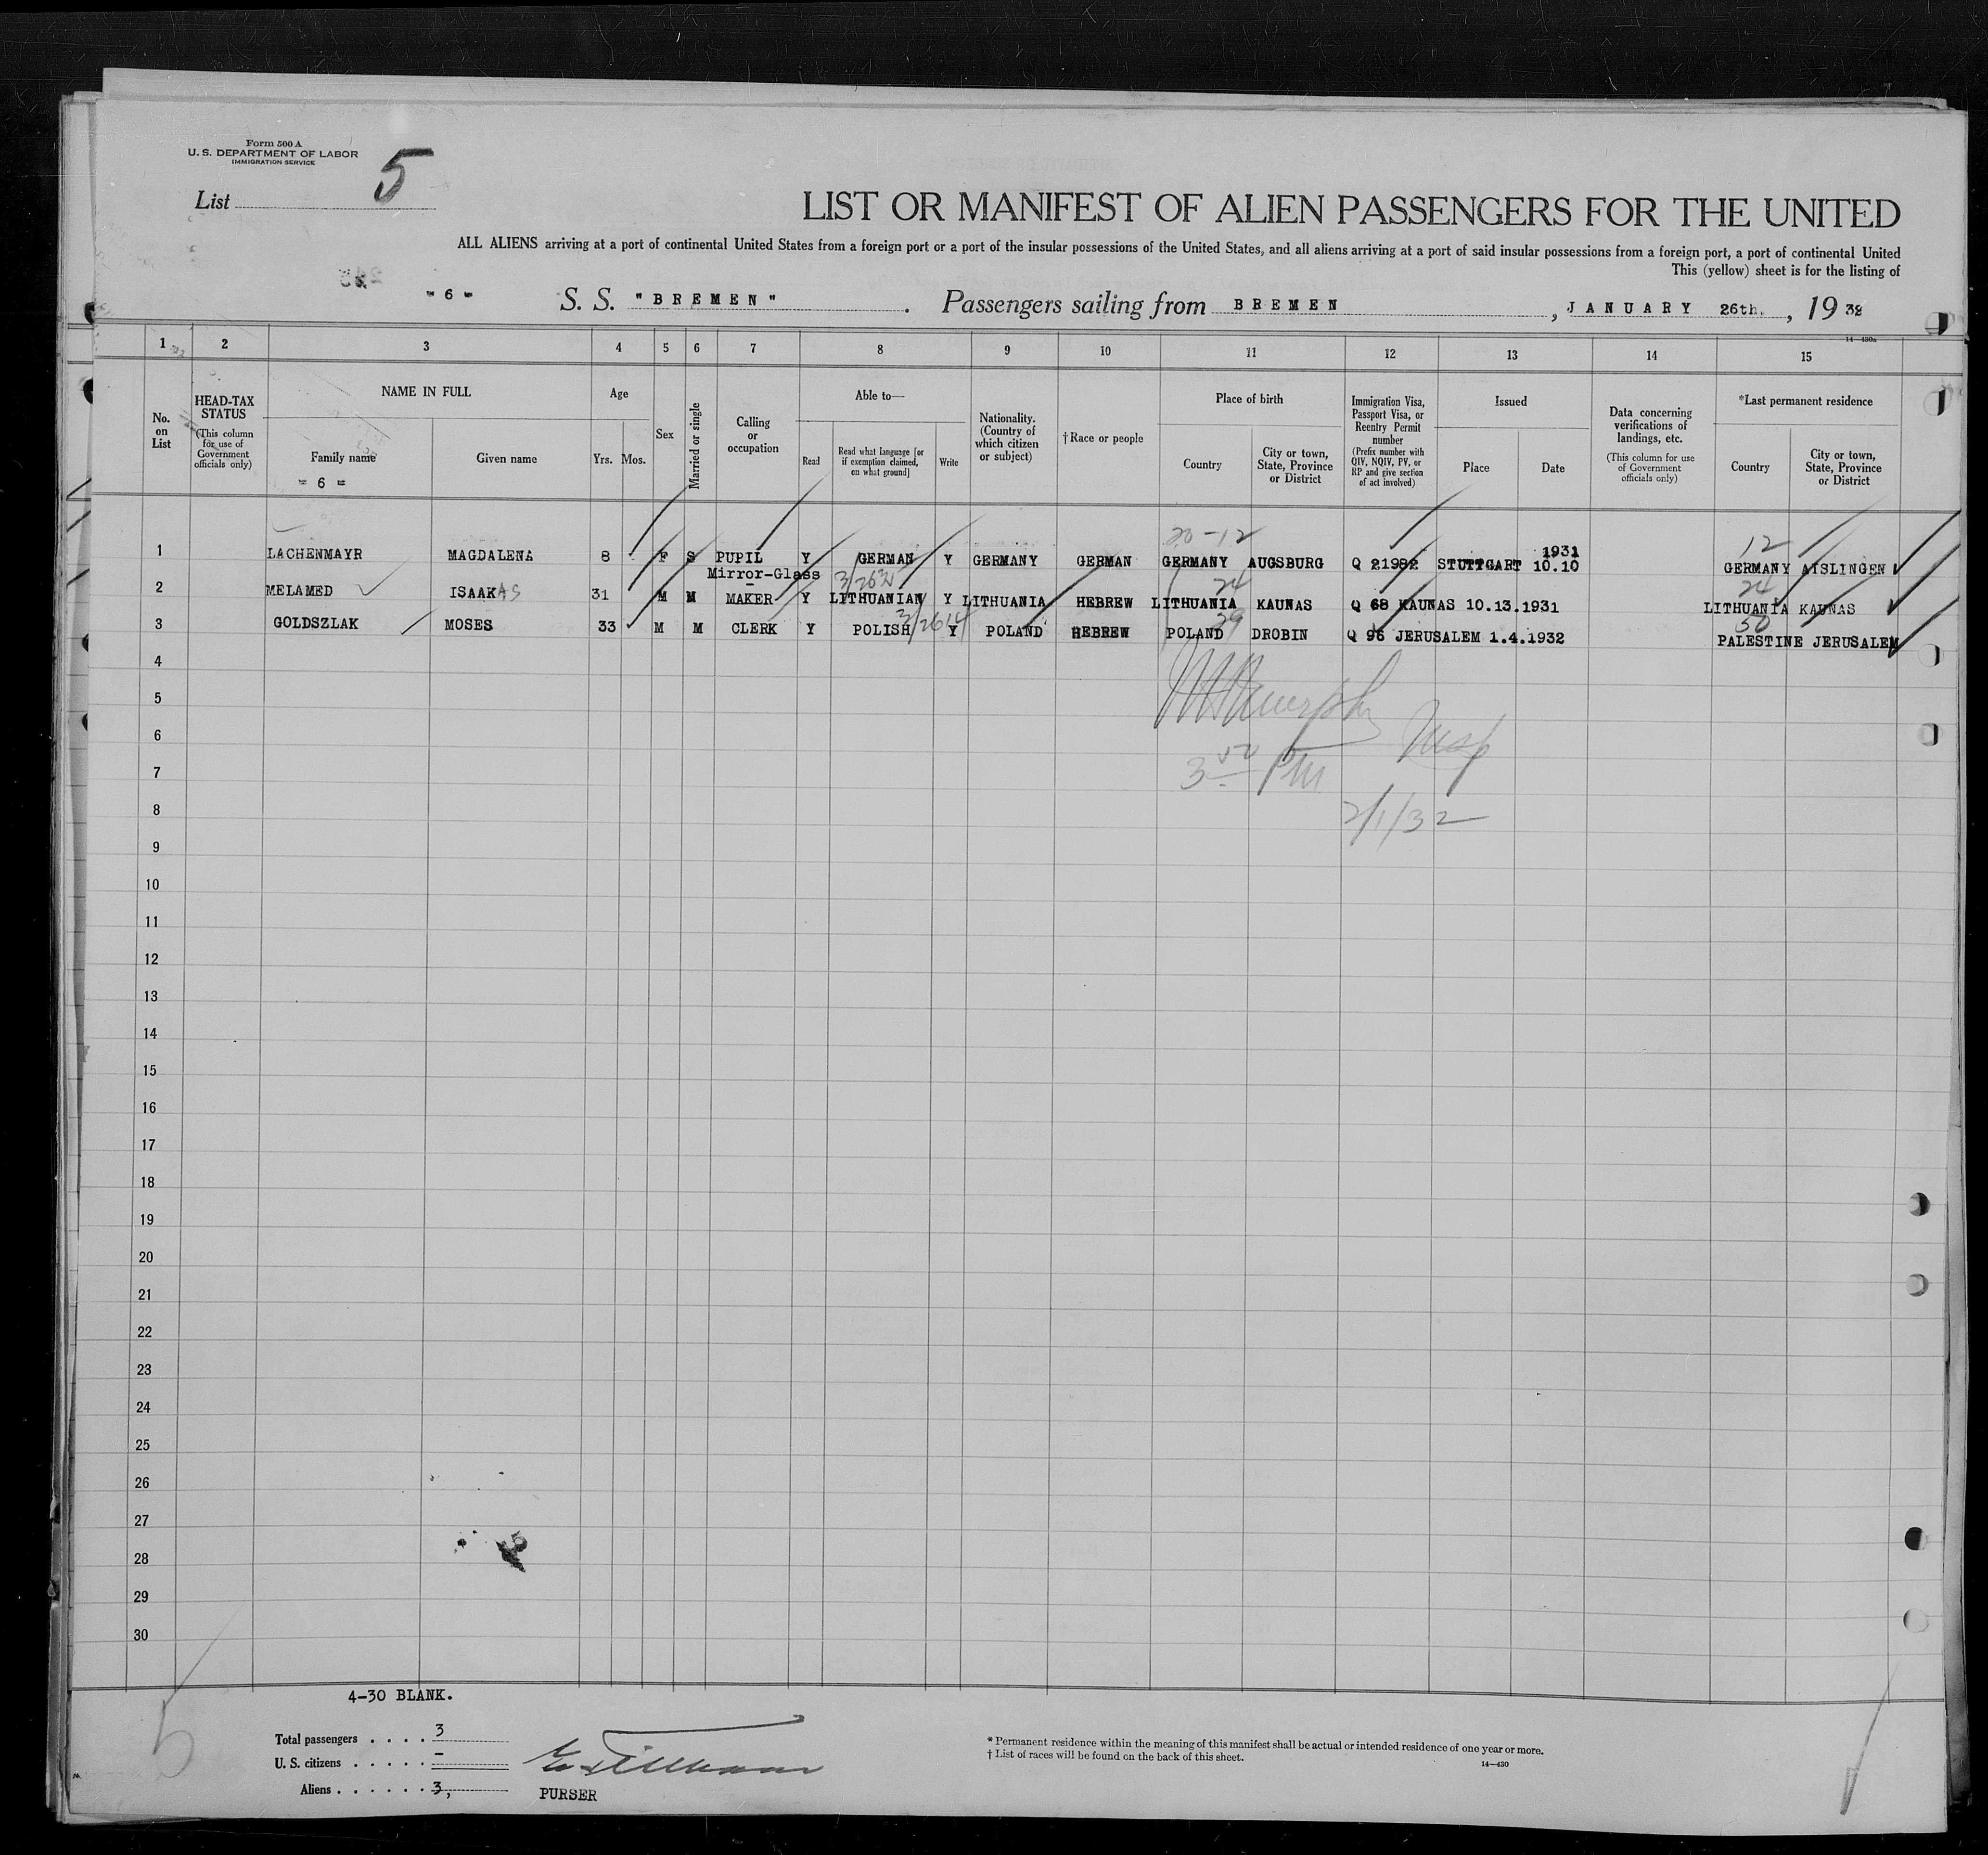 Form 500 A
U. S. DEPARTMENT OF LABOR
IMMIGRATION SERVICE
List 5
LIST OR MANIFEST OF ALIEN PASSENGERS FOR THE UNITED
ALL ALIENS arriving at a port of continental United States from a foreign port or a port of the insular possessions of the United States, and all aliens arriving at a port of said insular possessions from a foreign port, a port of continental United
This (yellow) sheet is for the listing of
- 6 - S. S. "BREMEN". Passengers sailing from BREMEN, JANUARY 26th, 1932
14-430a
1 2 3 4 5 6 7 8 9 10 11 12 13 14 15
No. on List
HEAD-TAX STATUS (This column for use of Government officials only)
NAME IN FULL
Family name
- 6 =
Given name
Age
Yrs. Mos.
Sex
Married or single
Calling or occupation
Able to—
Read
Read what language [or if exemption claimed, on what ground]
Write
Nationality. (Country of which citizen or subject)
†Race or people
Place of birth
Country
City or town, State, Province or District
Immigration Visa, Passport Visa, or Reentry Permit number (Prefix number with QIV, NQIV, PV, or RP and give section of act involved)
Issued
Place
Date
Data concerning verifications of landings, etc. (This column for use of Government officials only)
*Last permanent residence
Country
City or town, State, Province or District
20-12
1931
12
1 LACHENMAYR MAGDALENA 8 F S PUPIL Y GERMAN Y GERMANY GERMAN GERMANY AUGSBURG Q 21982 STUTTGART 10.10 GERMANY AISLINGEN
Mirror-Glass
24
24
2 MELAMED ISAAKAS 31 M M MAKER Y LITHUANIAN Y LITHUANIA HEBREW LITHUANIA KAUNAS Q 68 KAUNAS 10.13.1931 LITHUANIA KAUNAS
29
50
3 GOLDSZLAK MOSES 33 M M CLERK Y POLISH Y POLAND HEBREW POLAND DROBIN Q 96 JERUSALEM 1.4.1932 PALESTINE JERUSALEM
4
5
Murphy
6
Insp
7
3 50 PM
8
2/1/32
9
10
11
12
13
14
15
16
17
18
19
20
21
22
23
24
25
26
27
28
29
30
4-30 BLANK.
Total passengers . . . . 3
U. S. citizens . . . . . -
Aliens . . . . . . 3,
PURSER
* Permanent residence within the meaning of this manifest shall be actual or intended residence of one year or more.
† List of races will be found on the back of this sheet.
14—430